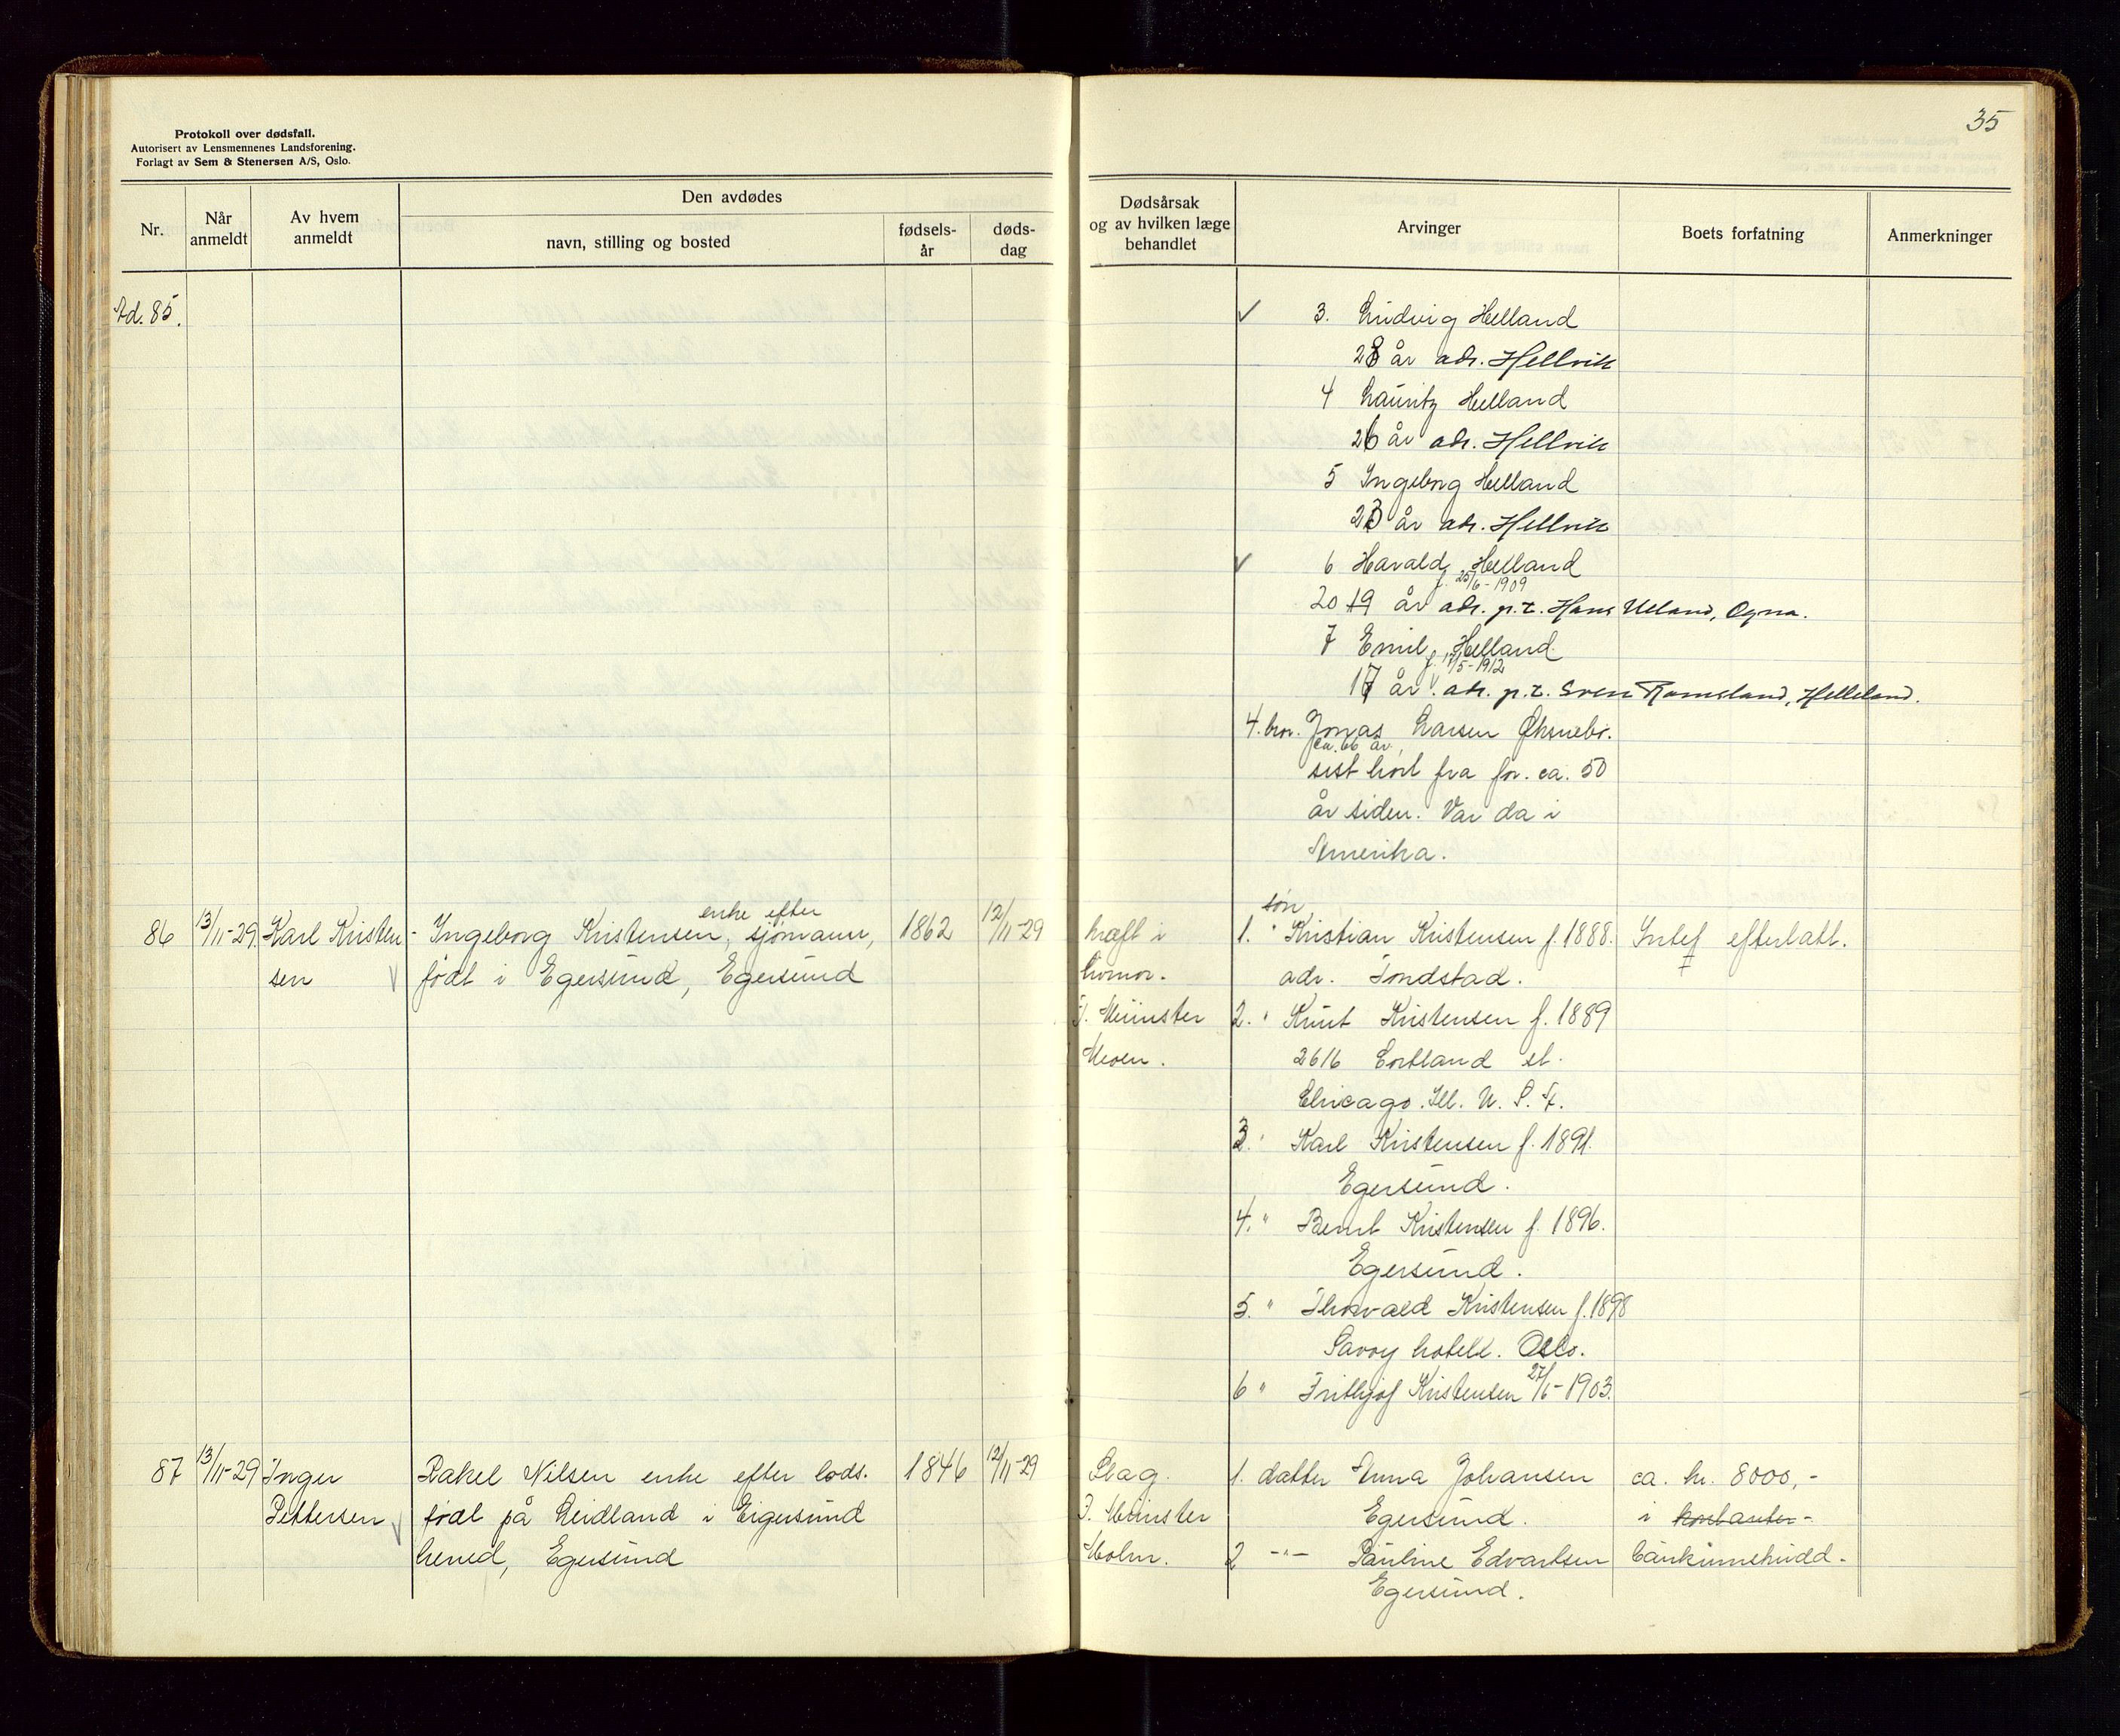 Protokoll over dødsfall.
Autorisert av Lensmennenes Landsforening.
Forlagt av Sem & Stenersen A/S, Oslo.
35
Nr.
Når anmeldt
Av hvem anmeldt
Den avdødes
navn, stilling og bosted
fødsels-
år
døds-
dag
Dødsårsak
og av hvilken læge
behandlet
Arvinger
Boets forfatning
Anmerkninger
Ad. 85.
✓ 3. Ludvig Helland
28 år adr. Hellvik
4 Lauritz Helland
26 år adr. Hellvik
5 Ingeborg Helland
23 år adr. Hellvik
✓ 6 Harald Helland
f. 25/6-1909
20 19 år adr. p.t. Hans Ueland, Ogna.
7 Emil Helland
f. 11/5-1912
17 år. adr. p.t. Sven Ramsland, Helleland.
4. bror. Jonas Larsen Øksnebr.
ca. 66 år.
sist hørt fra for ca. 50
år siden. Var da i
Amerika.
86 13/11-29. Karl Kristen- Ingeborg Kristensen, enke efter sjømann, 1862 12/11-29
sen født i Egersund, Egersund
kræft i
livmor.
F. Münster
Moen.
søn
1. " Kristian Kristensen f. 1888. Intet efterlatt.
adr. Tondstad.
2. " Knut Kristensen f. 1889
2616 Cortland st.
Chicago. Ill. U. S. A.
3. " Karl Kristensen f. 1891.
Egersund.
4. " Bernt Kristensen f. 1896.
Egersund.
5. " Thorvald Kristensen f. 1898
Savoy hotell. Oslo.
6 " Frithjof Kristensen 27/5-1903.
87 13/11-29 Inger Rakel Nilsen enke efter lods. 1846 12/11-29
Pettersen født på Leidland i Eigersund
herred, Egersund
Slag.
F. Münster
Mohn.
1. datter Anna Johansen ca. kr. 8000,-
Egersund. i kontanter-
2 -"- Pauline Edvartsen bankinnskudd-
Egersund.